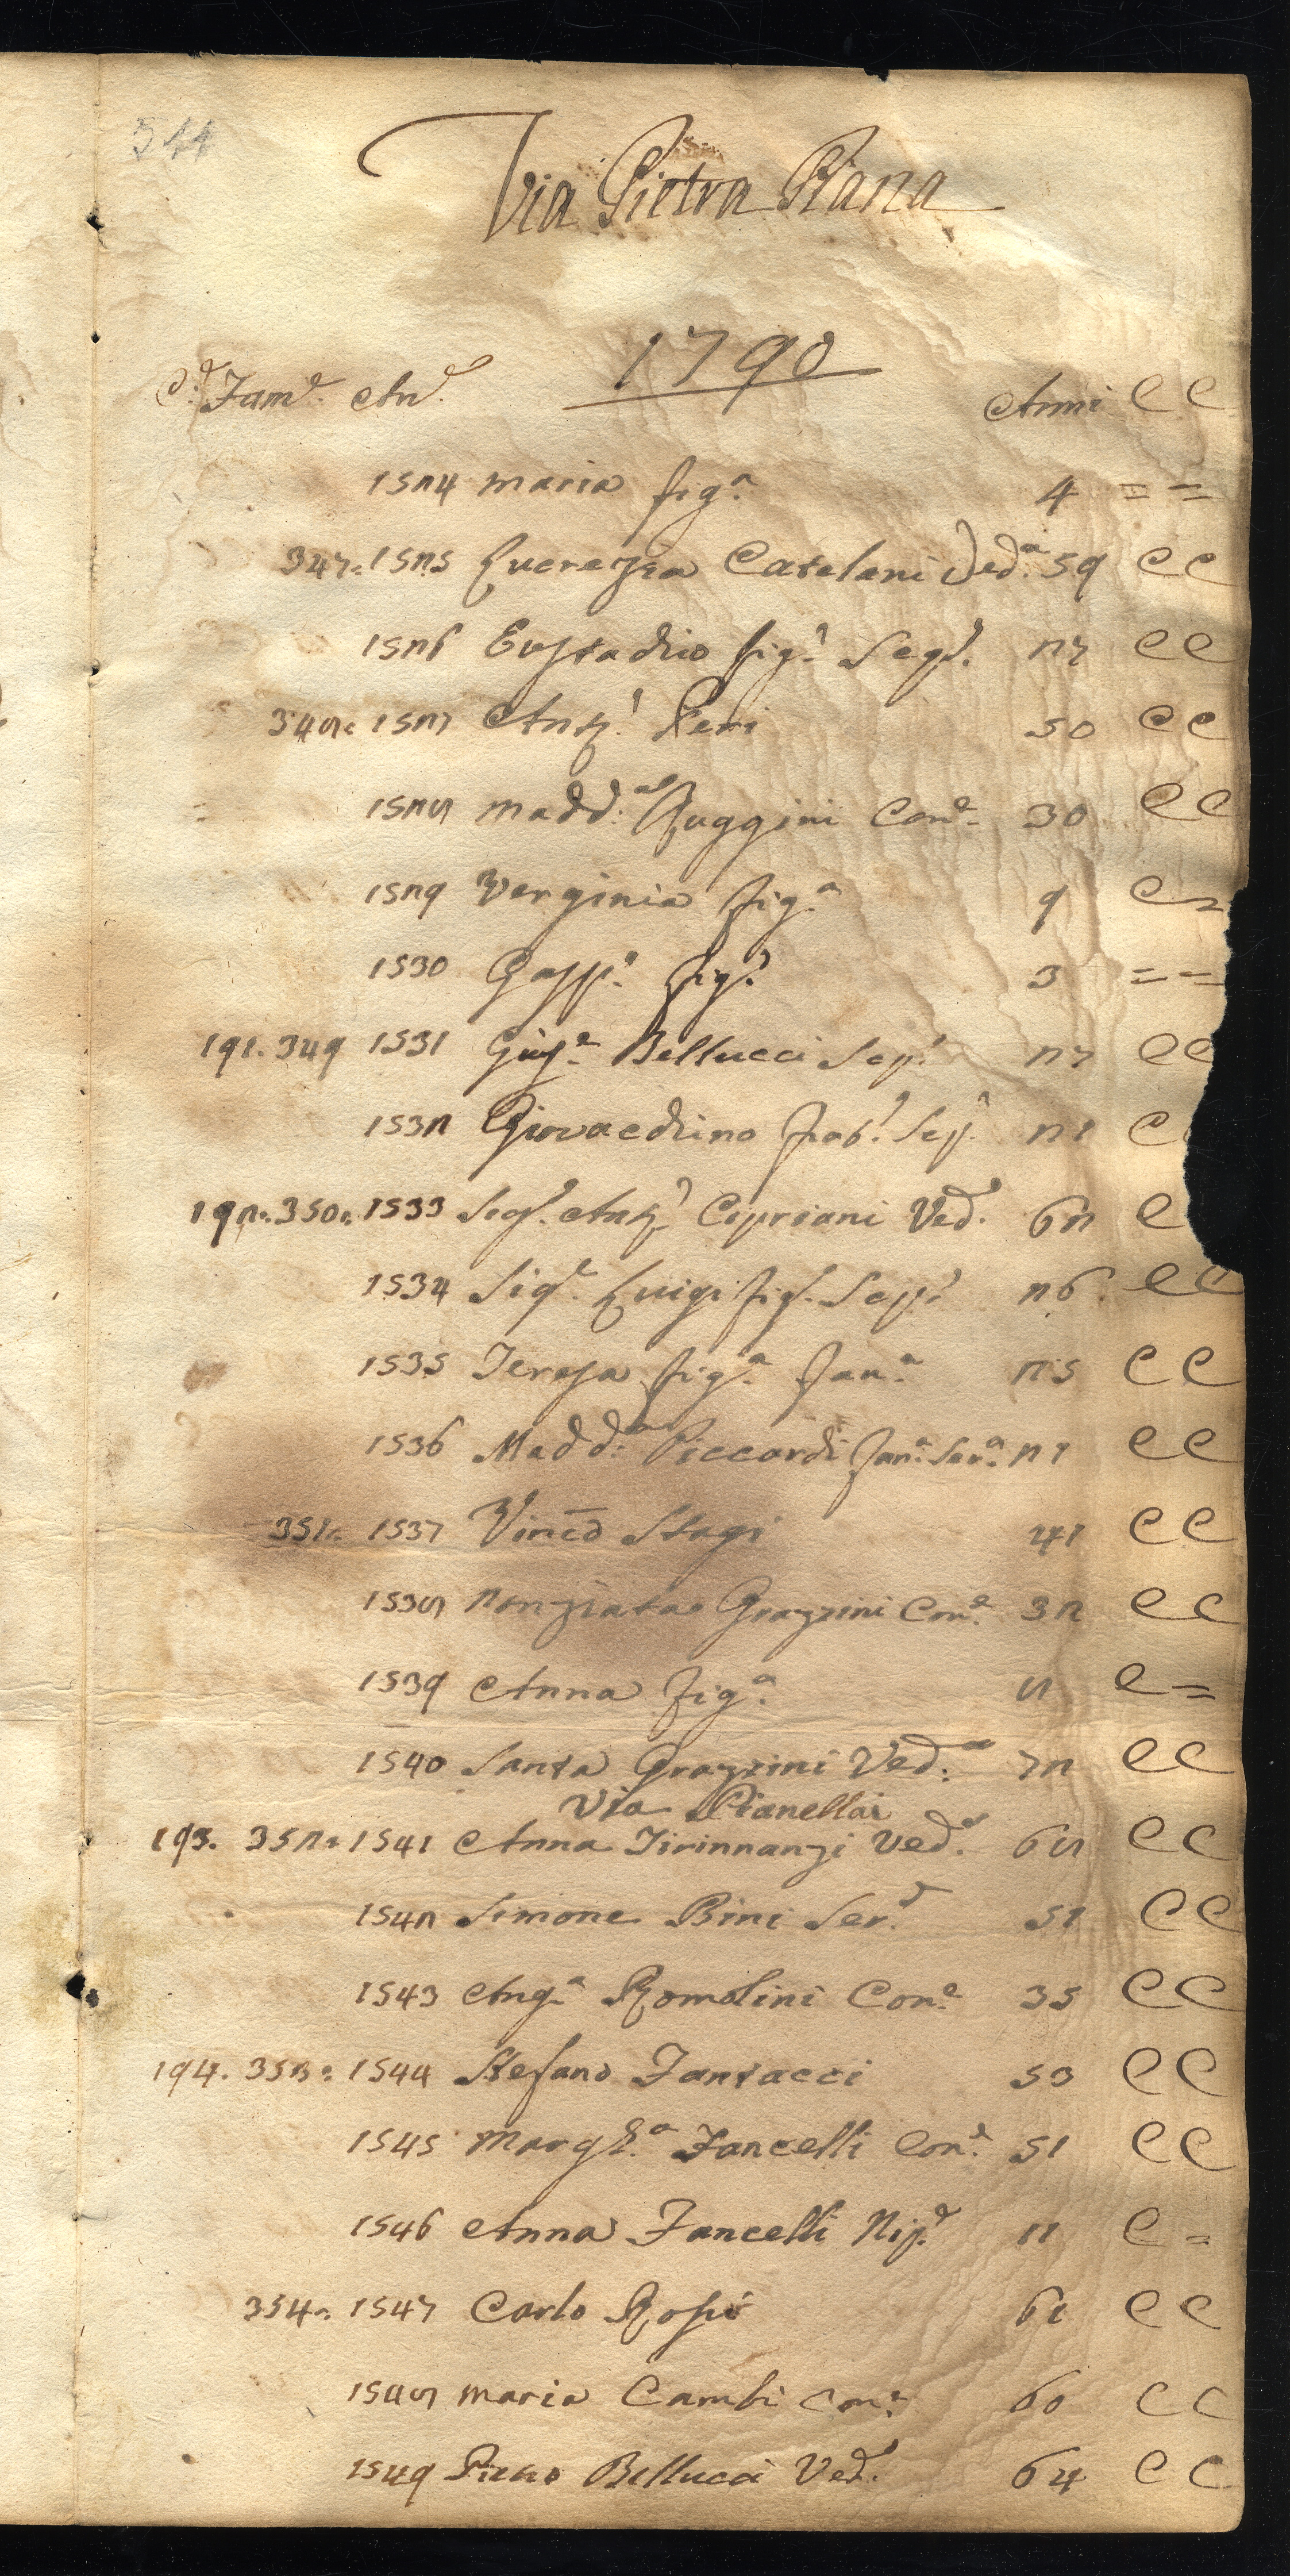 544
Via Pietra Piana
1790
C.e Fam.e An.e Anni C C
1524 maria fig.a 4 = =
347. 1525 Lucrezia Catelani Ved.a 59 C C
1526 Eustachio fig.o 27 C C
348. 1527 Ant.o Peri 50 C C
1528 Madd.a Ruggini Con.e 30 C C
1529 Verginia fig.a 9 C =
1530 Gasp.o fig.o 3 = =
191. 349 1531 Gius.e Bellucci Sep.o 27 C C
1532 Giovacchino frat.o Sep.o 21 C
192. 350. 1533 Sig.e Ant.o Cipriani Ved.o 62 C
1534 Sig.e Luigi fig. Sep.o 26 C C
1535 Teresa fig.a fan.a 25 C C
1536 Madd.a Piccardi fan.a Ser.a 21 C C
351. 1537 Vinc.o Stagi 41 C C
1538 Nonziata Grazzini Con.e 32 C C
1539 Anna fig.a 8 C =
1540 Santa Grazzini Ved.a 72 C C
Via Pianellai
193. 352. 1541 Anna Tirinnanzi Ved.a 68 C C
1542 Simone Bini Ser.e 51 C C
1543 Ang.a Romolini Con.e 35 C C
194. 353. 1544 Stefano Fantacci 53 C C
1545 Margh.a Fancelli Con.e 51 C C
1546 Anna Fancelli Nip.e 11 C =
354. 1547 Carlo Rossi 61 C C
1548 maria Cambi Con.e 60 C C
1549 Piero Bellucci Ved.o 64 C C